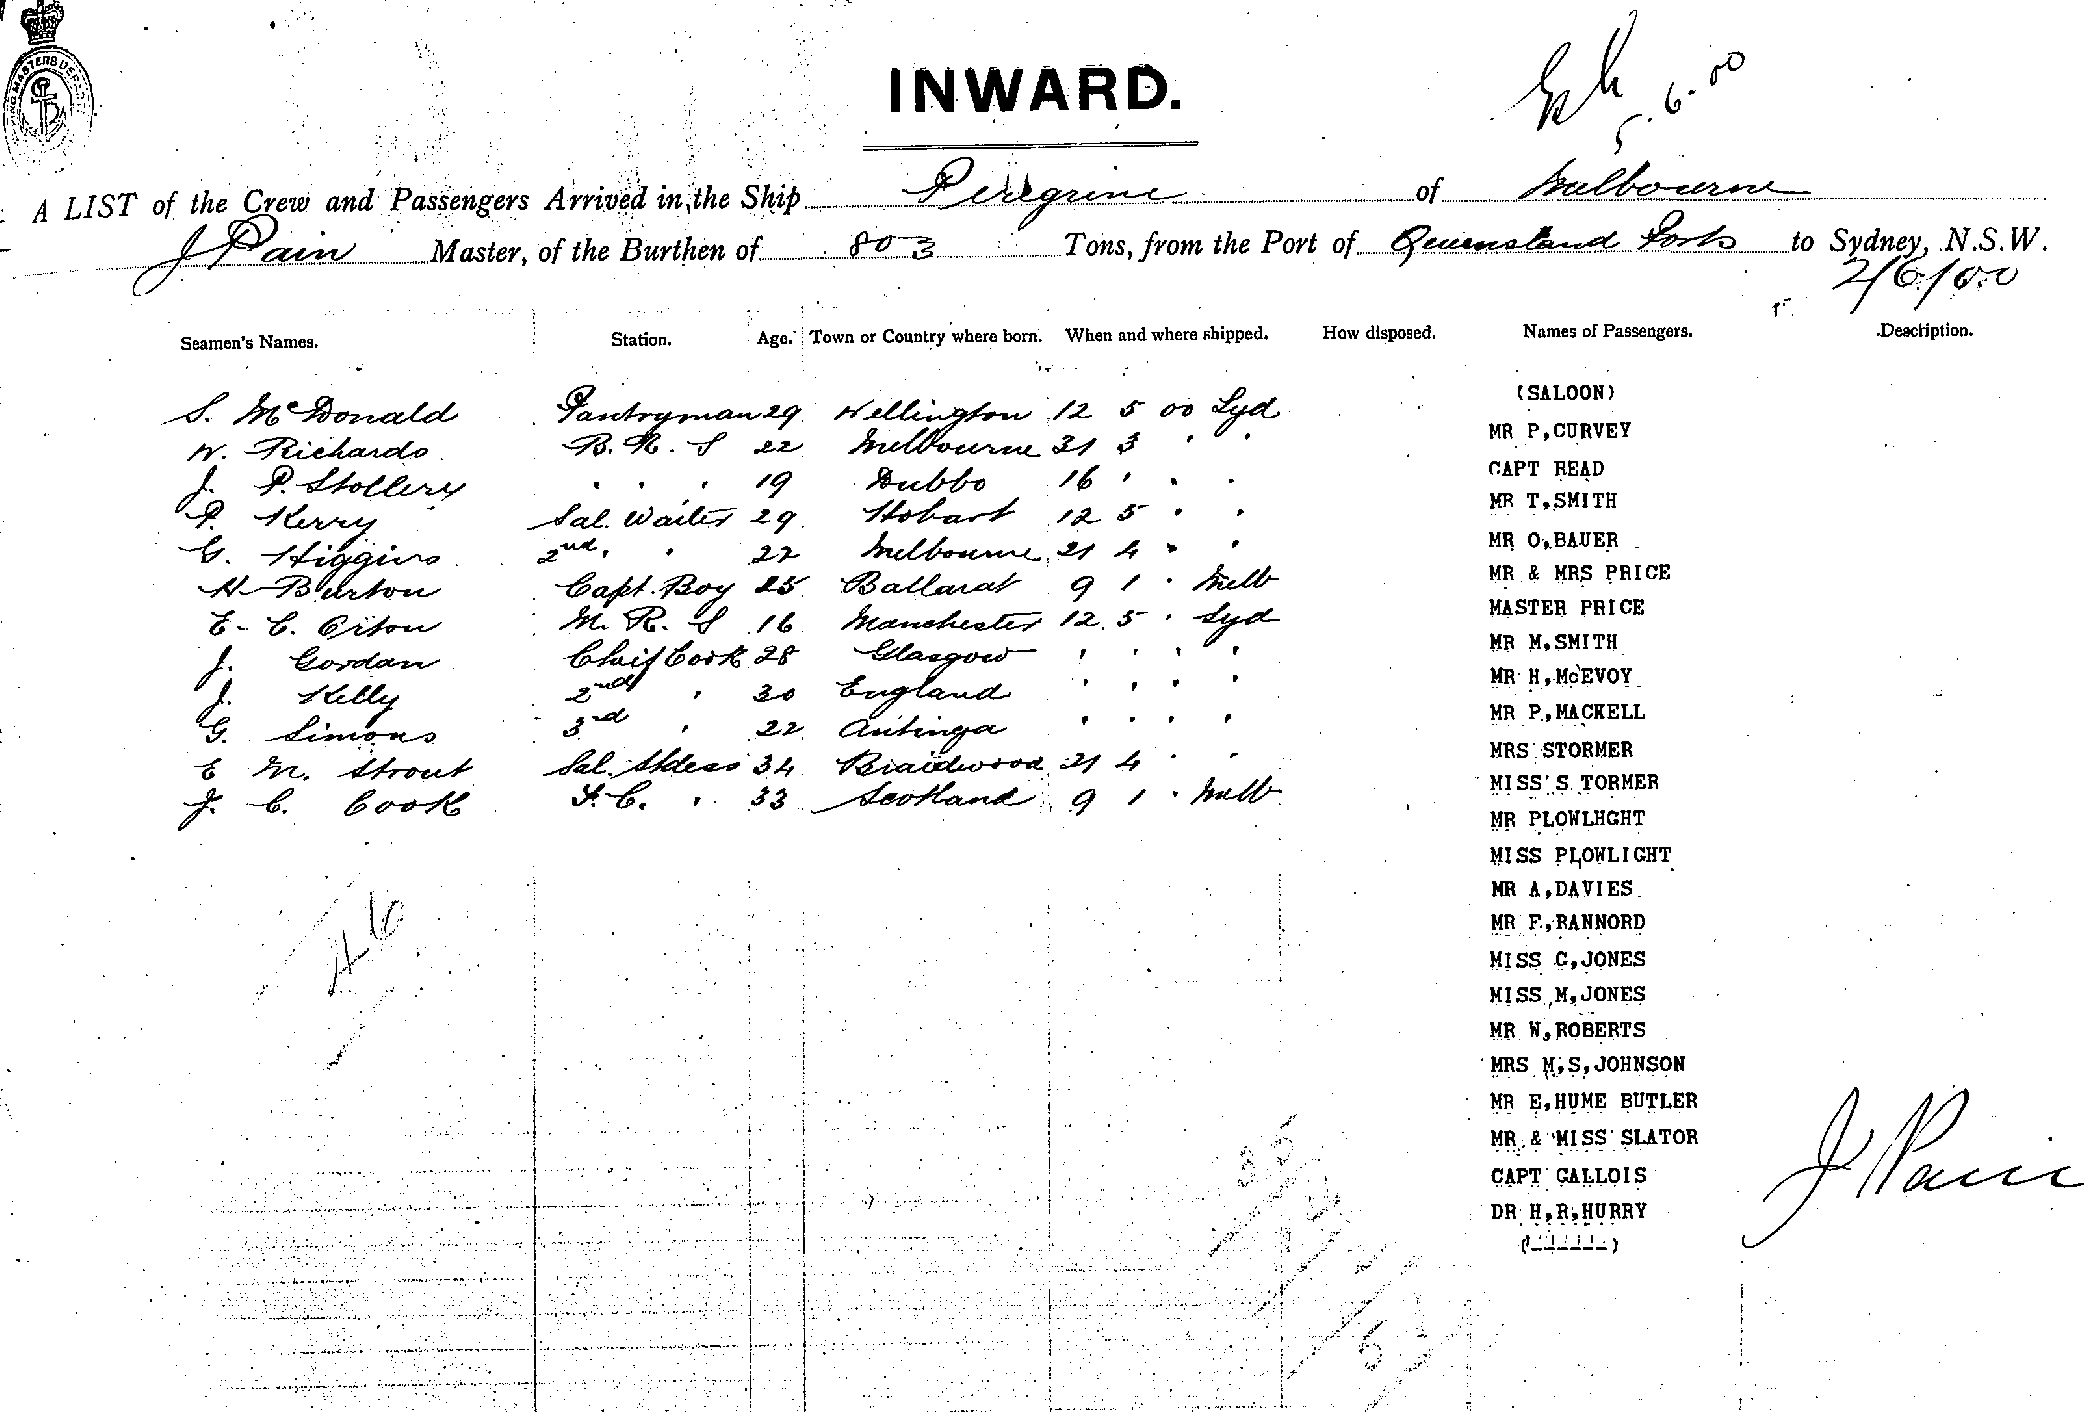 INWARD.
5.6.00
A LIST of the Crew and Passengers Arrived in the Ship Peregrine of Melbourne
J Pain Master, of the Burthen of 803 Tons, from the Port of Queensland Ports to Sydney, N.S.W.
2/6/00
Seamen's Names. Station. Age. Town or Country where born. When and where shipped. How disposed. Names of Passengers. Description.
(SALOON)
S. McDonald Pantryman 29 Wellington 12 5 00 Syd
MR P,CURVEY
W. Richards B. R. S 22 Melbourne 31 3 " "
CAPT READ
J. P. Stollery " " " 19 Dubbo 16 " " "
MR T,SMITH
P. Kerry Sal. Waiter 29 Hobart 12 5 " "
MR O,BAUER
G. Higgins 2nd " " 22 Melbourne 21 4 " "
MR & MRS PRICE
H Burton Capt. Boy 25 Ballarat 9 1 " Melb
MASTER PRICE
E. C. Orton M. R. S 16 Manchester 12 5 " Syd
MR M,SMITH
J. Gordan Chief Cook 28 Glasgow " " " "
MR H,McEVOY
J. Kelly 2nd " 30 England " " " "
MR P,MACKELL
G. Simons 3rd " 22 Antinga " " " "
MRS STORMER
E M. Strout Sal. Stdess 34 Braidwood 21 4 " "
MISS'S TORMER
J. C. Cook F. C. " 33 Scotland 9 1 " Melb
MR PLOWLHGHT
MISS PLOWLIGHT
MR A,DAVIES
46
MR F,RANNORD
MISS C,JONES
MISS M,JONES
MR W,ROBERTS
MRS M,S,JOHNSON
MR E,HUME BUTLER
MR & MISS SLATOR
CAPT GALLOIS
DR H,R,HURRY
J Pain